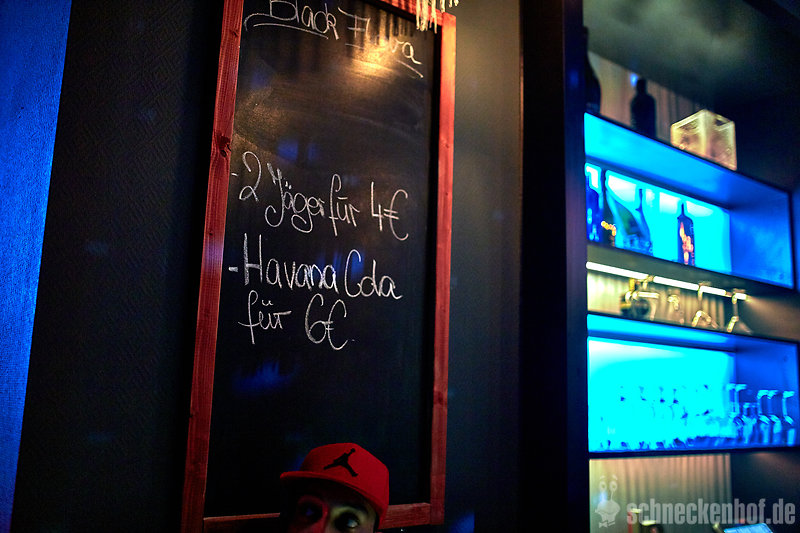 Black
- 2 Jäger für 4€
- Havana Cola
für 6€
schneckenhof.de